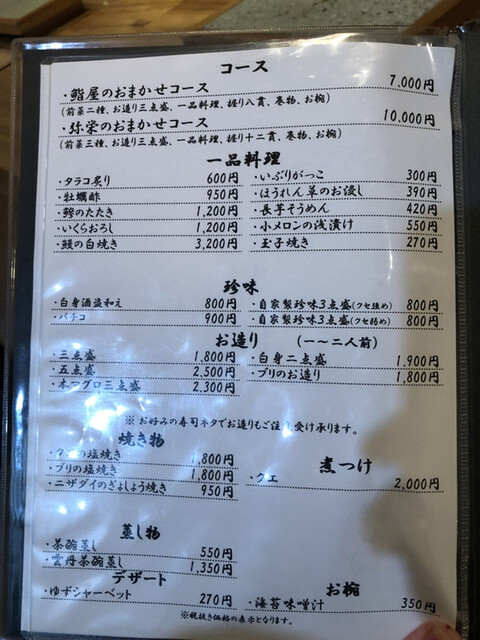 コース
・鮨屋のおまかせコース 7,000円
(前菜二種、お造り三点盛、一品料理、握り八貫、巻物、お椀)
・弥栄のおまかせコース 10,000円
(前菜三種、お造り三点盛、一品料理、握り十二貫、巻物、お椀)
一品料理
・タラコ炙り 600円
・牡蠣酢 950円
・鯵のたたき 1,200円
・いくらおろし 1,200円
・鰻の白焼き 3,200円
・いぶりがっこ 300円
・ほうれん草のお浸し 390円
・長芋そうめん 420円
・小メロンの浅漬け 550円
・玉子焼き 270円
珍味
・白身酒盗和え 800円
・バチコ 900円
・自家製珍味3点盛(クセ強め) 800円
・自家製珍味3点盛(クセ弱め) 800円
お造り (一〜二人前)
・三点盛 1,800円
・五点盛 2,500円
・本マグロ三点盛 2,300円
・白身二点盛 1,900円
・ブリのお造り 1,800円
※お好みの寿司ネタでお造りもご注 受け承ります。
焼き物
の塩焼き 1,800円
・ブリの塩焼き 1,800円
・ニザダイのぎょしょう焼き 950円
煮つけ
・クエ 2,000円
蒸し物
・茶碗蒸し 550円
・雲丹茶碗蒸し 1,350円
デザート
・ゆずシャーベット 270円
お椀
・海苔味噌汁 350円
※税抜き価格の表示となります。